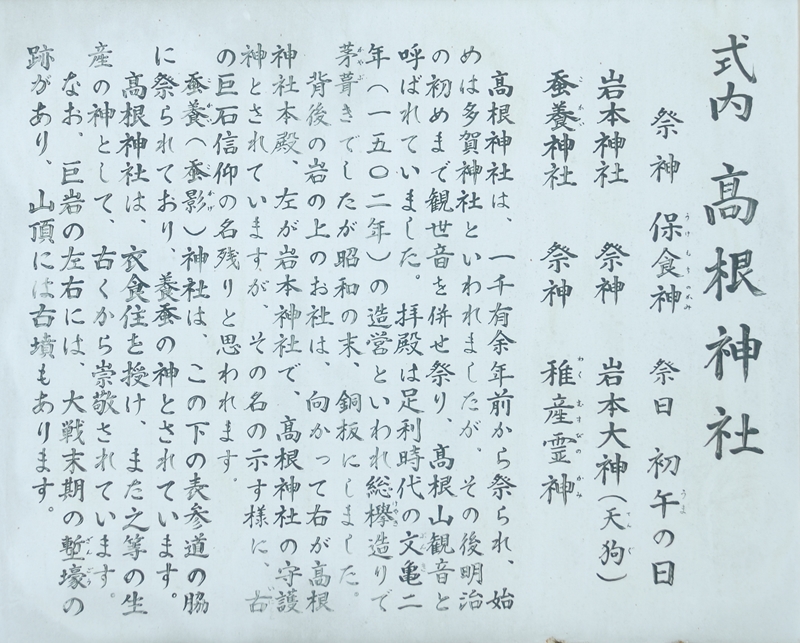 式内 髙根神社
祭神 保食神 祭日 初午の日
岩本神社 祭神 岩本大神(天狗)
蚕養神社 祭神 稚産霊神
髙根神社は、一千有余年前から祭られ、始
めは多賀神社といわれましたが、その後明治
の初めまで観世音を併せ祭り、髙根山観音と
呼ばれていました。拝殿は足利時代の文亀二
年(一五〇二年)の造営といわれ総欅造りで
茅葺きでしたが昭和の末、銅板にしました。
背後の岩の上のお社は、向かって右が髙根
神社本殿、左が岩本神社で、髙根神社の守護
神とされていますが、その名の示す様に、古
の巨石信仰の名残りと思われます。
蚕養(蚕影)神社は、この下の表参道の脇
に祭られており、養蚕の神とされています。
髙根神社は、衣食住を授け、また之等の生
産の神として、古くから崇敬されています。
なお、巨岩の左右には、大戦末期の塹壕の
跡があり、山頂には古墳もあります。